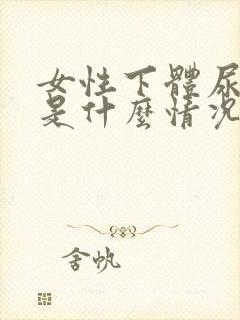 女性下體尿
是什麼情況
舍帆